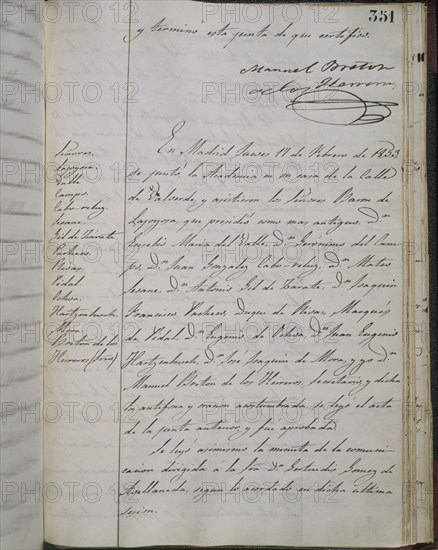 351
y termino esta junta de que certifico.
Manuel Breton
de los Herreros
Señores.
Lajoyosa
Valle
Campo
Cabo-reluz
Seoane
Gil de Zarate
Pacheco
Rivas
Pidal
Ochoa
Hartzenbusch
Mora
Breton de los
Herreros (Srio)
En Madrid Jueves 17 de Febrero de 1853
se juntó la Academia en su casa de la Calle
de Valverde, y asistieron los Señores Baron de
Lajoyosa, que presidió como mas antiguo, Dn.
Eusebio Maria del Valle, Dn. Geronimo del Cam-
po, Dn. Juan Gonzalez Cabo-reluz, Dn. Mateo
Seoane, Dn. Antonio Gil de Zarate, Dn. Joaquin
Francisco Pacheco, Duque de Rivas, Marqués
de Pidal, Dn. Eugenio de Ochoa, Dn. Juan Eugenio
Hartzenbusch, Dn. José Joaquin de Mora, y yo Dn.
Manuel Breton de los Herreros, Secretario; y dicha
la antifona y oracion acostumbrada se leyó el acta
de la junta anterior, y fue aprobada.
Se leyó asimismo la minuta de la comuni-
cacion dirigida a la Sra. Da. Gertrudis Gomez de
Avellaneda, segun lo acordado en dicha ultima
sesion.
PHOTO12